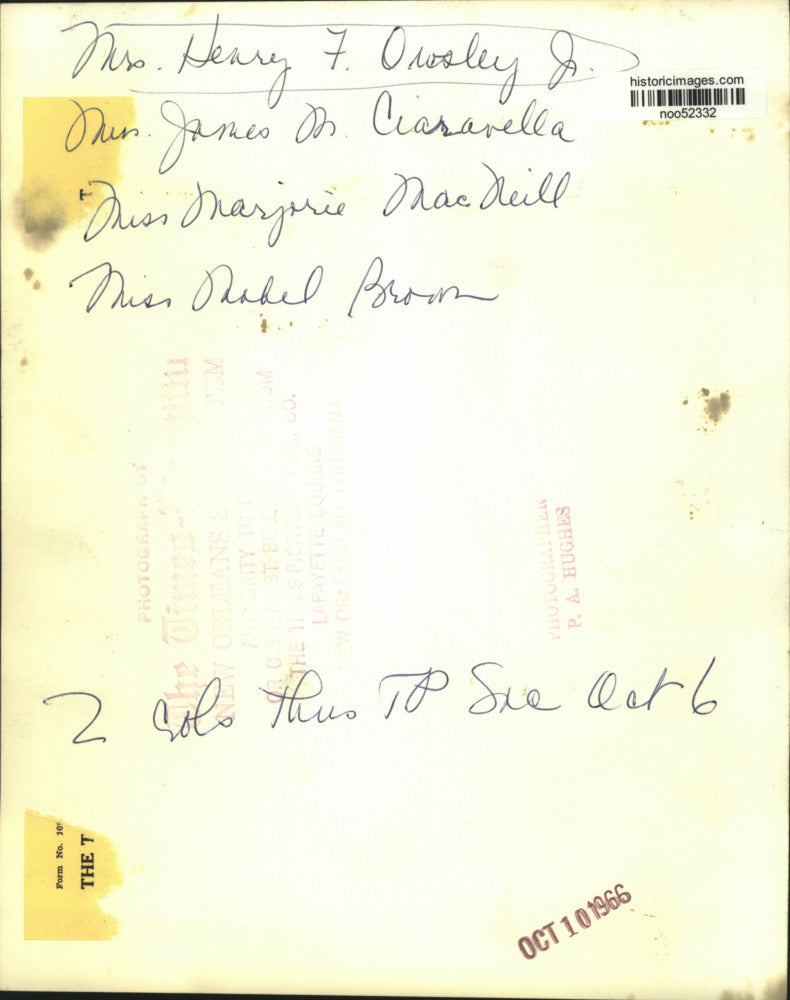 Mrs. Henry F. Owsley Jr.
historicimages.com
noo52332
Mrs. James M. Ciaravella
T
Miss Marjorie MacNeill
Miss Mabel Brown
PHOTOGRAPH BY
The Times-Picayune
NEW ORLEANS
AUTHORITY TO
OR COPY MUST BE FROM
THE TIMES PICAYUNE PUB. CO.
LAFAYETTE SQUARE
NEW ORLEANS LOUISIANA
PHOTOGRAPHER
P. A. HUGHES
2 Cols Thus TP Soc Oct 6
Form No. 10
THE T
OCT 10 1966